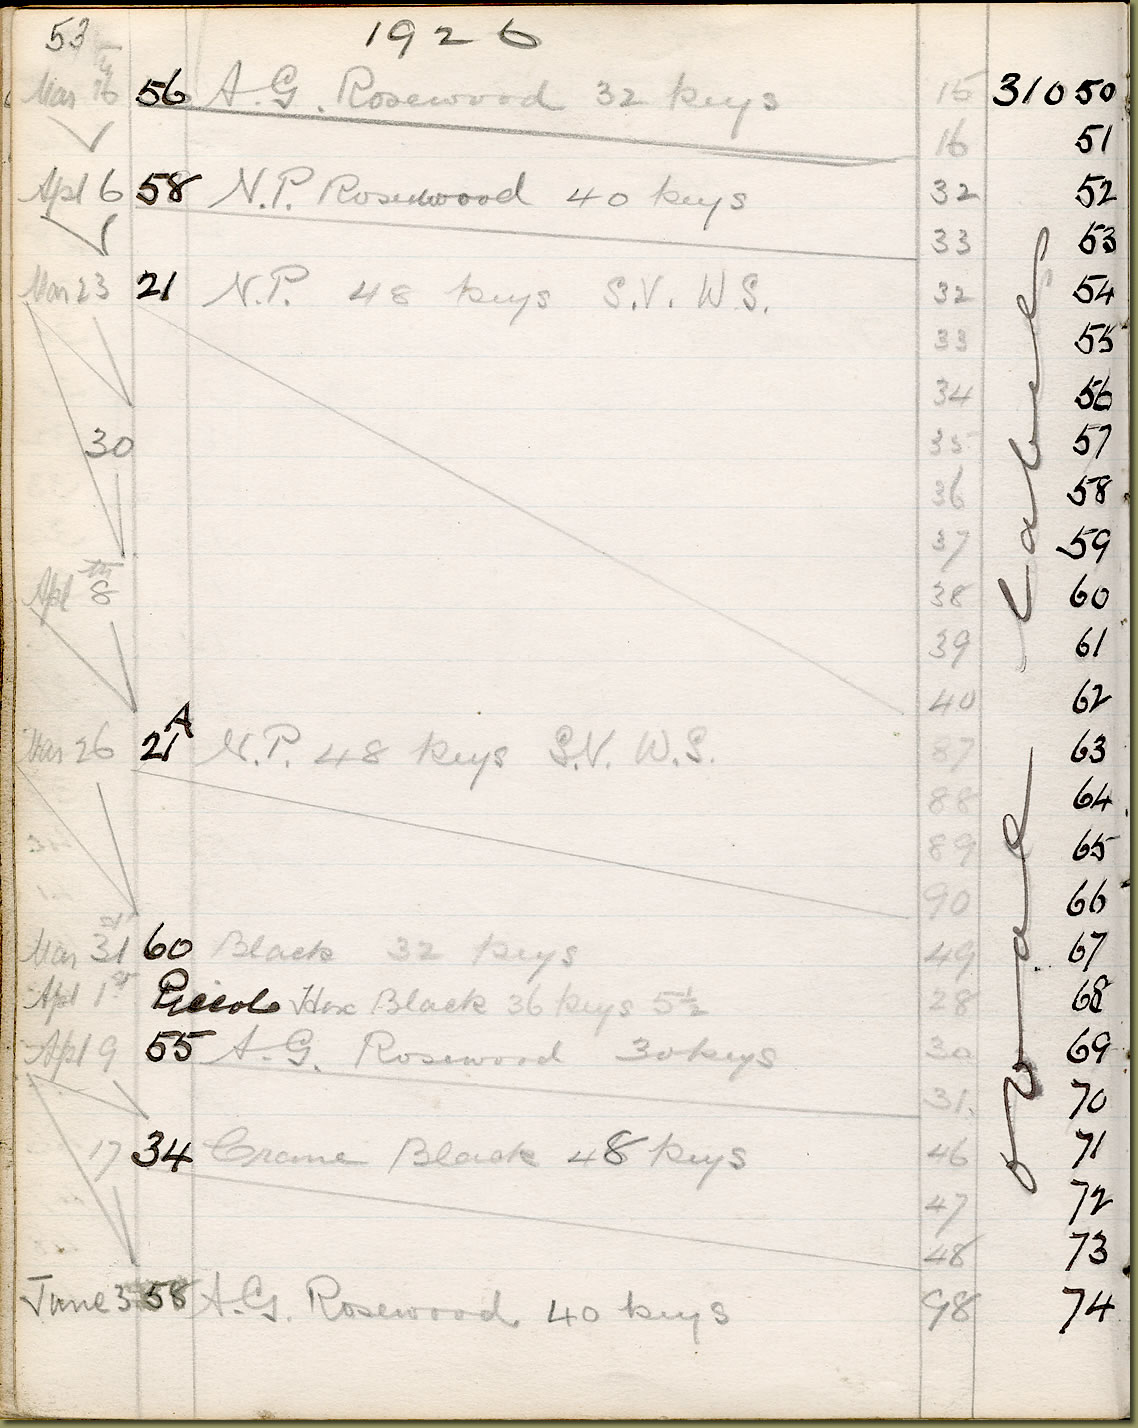 53 1926
Mar 16 56 A.G. Rosewood 32 keys 15 31050
16 51
Apl 6 58 N.P. Rosewood 40 keys 32 52
33 53
Mar 23 21 N.P. 48 keys S.V. W.S. 32 54
33 55
34 56
30 35 57
36 58
37 59
Apl 8th 38 60
39 61
40 62
Mar 26 21A N.P. 48 keys S.V. W.S. 87 63
88 64
89 65
90 66
Mar 31st 60 Black 32 keys 49 67
Apl 1st Piccolo Hex Black 36 keys 5½ 28 68
Apl 9 55 A.G. Rosewood 30 keys 30 69
31. 70
17 34 Crane Black 48 keys 46 71
47 72
48 73
June 3 58 A.G. Rosewood 40 keys 98 74
oval labels